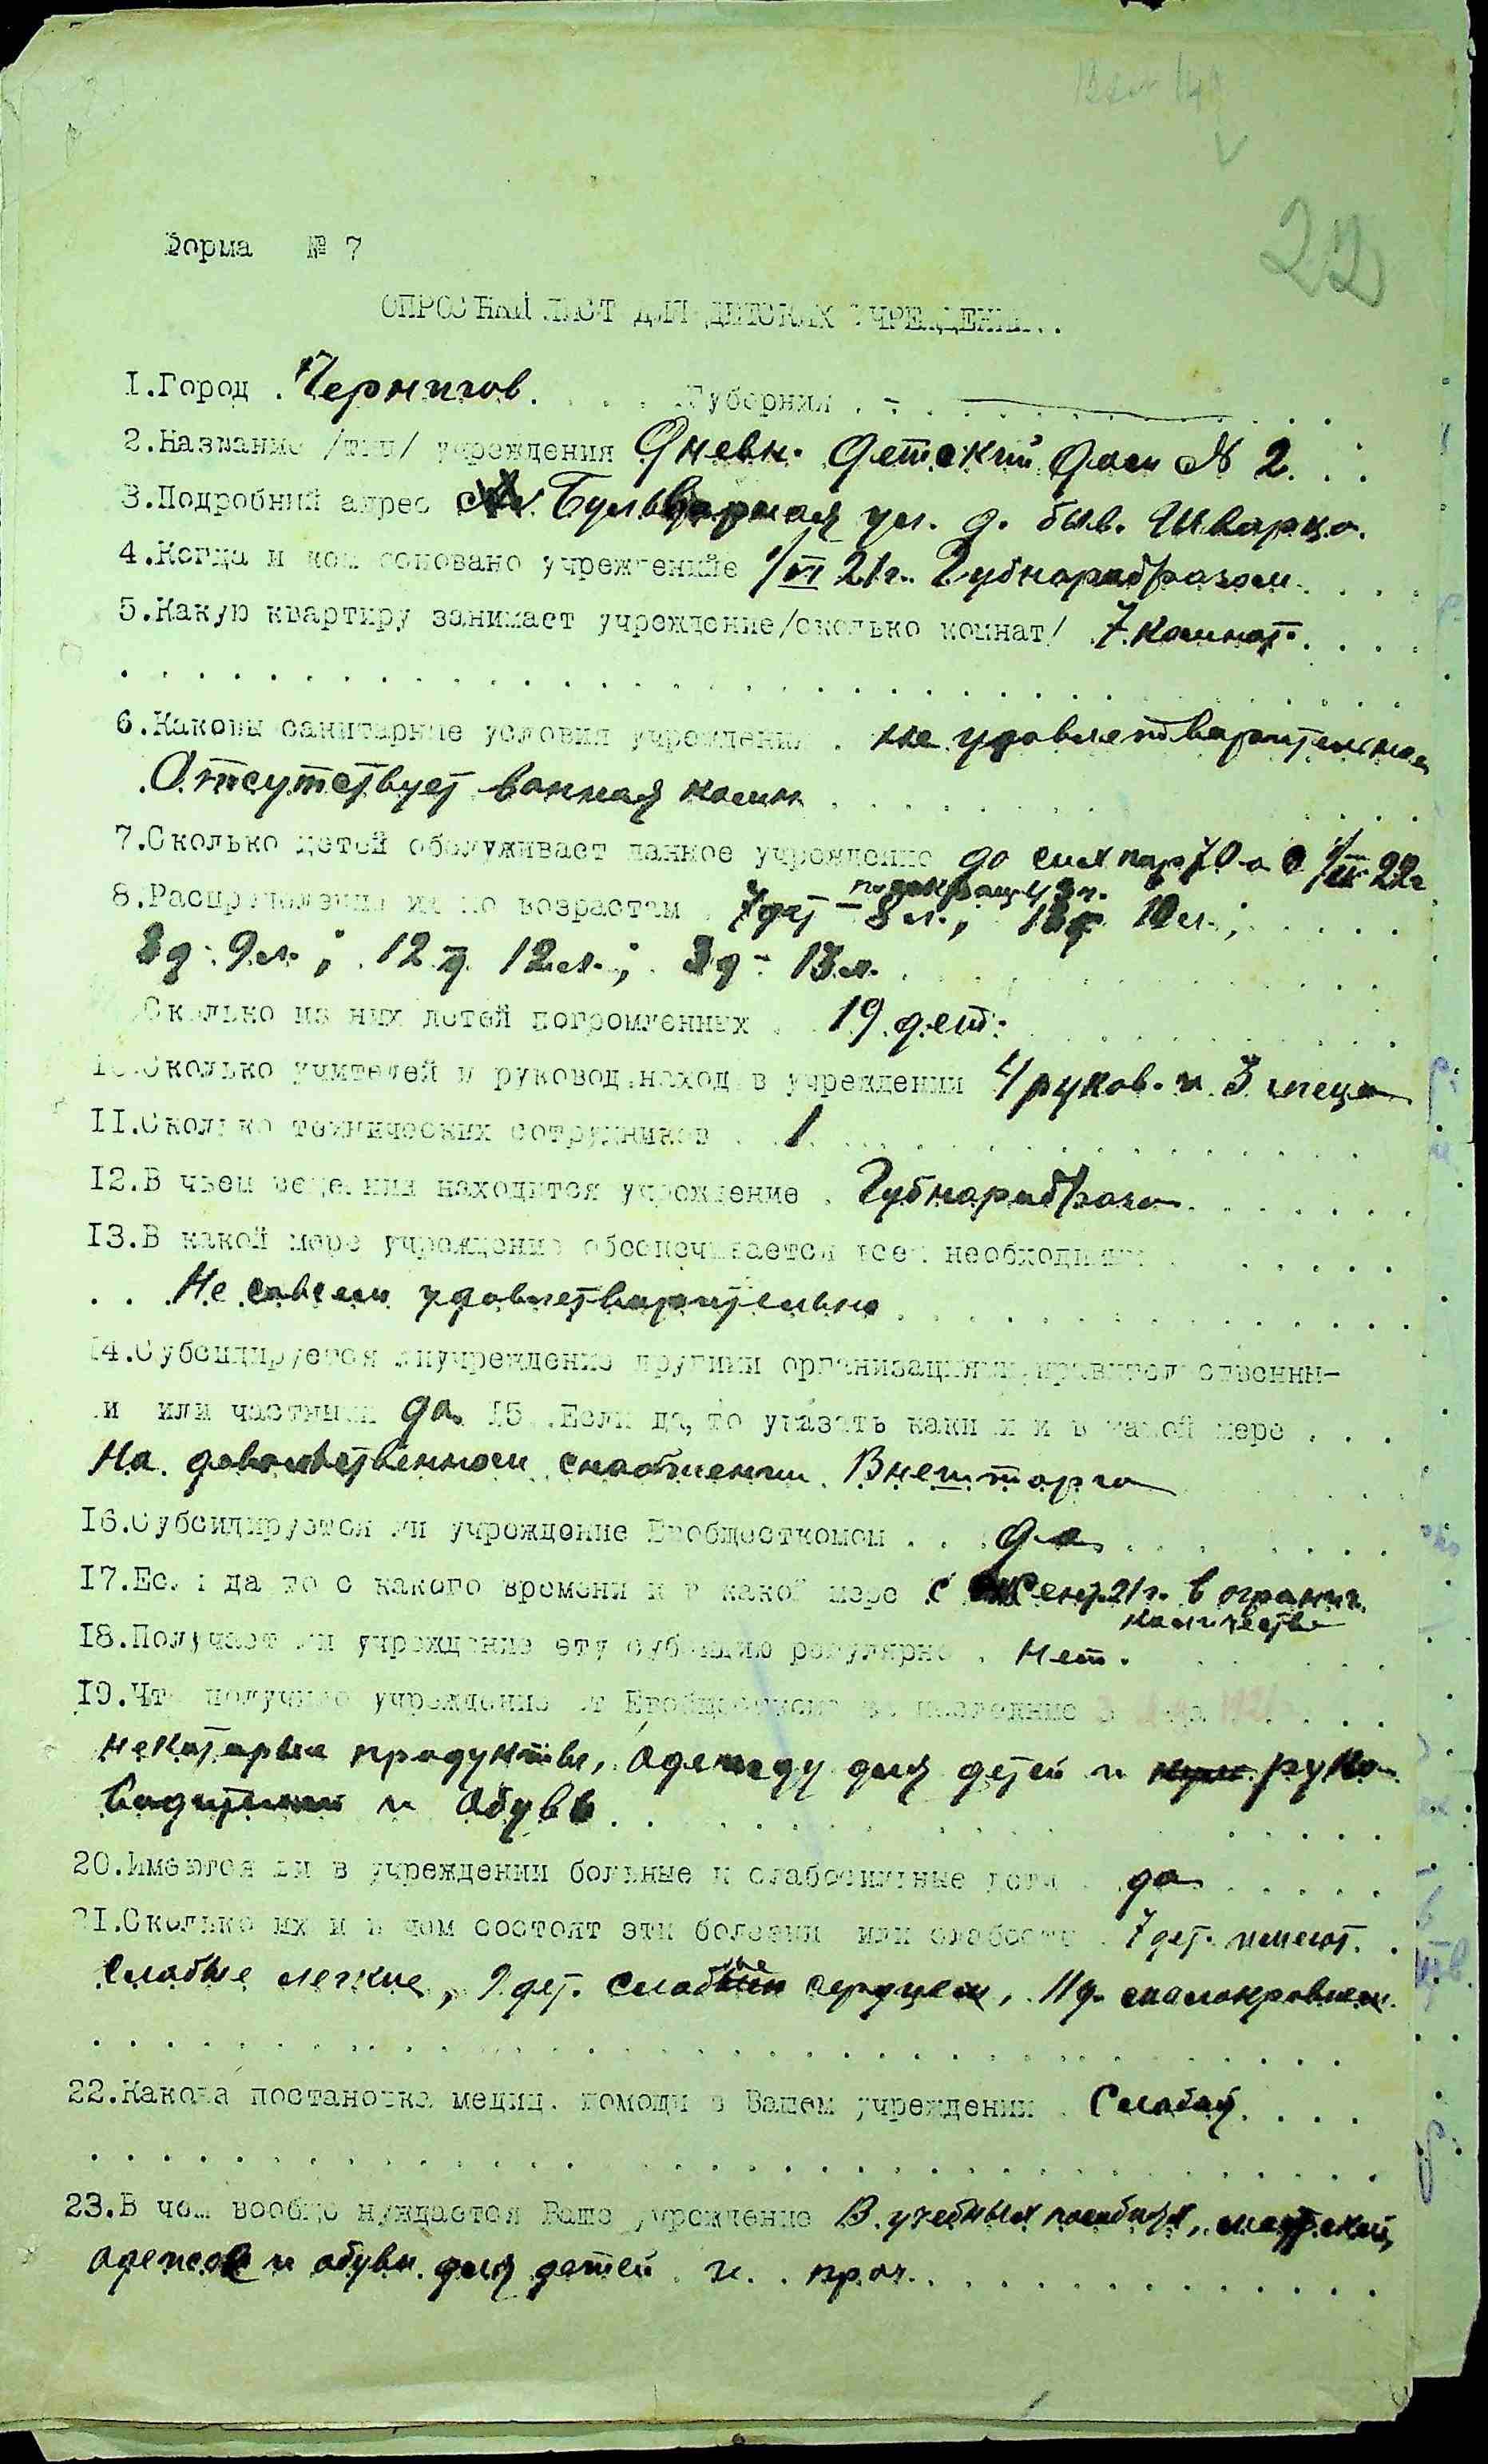 22
Форма № 7
ОПРОСНЫЙ ЛИСТ ДЛЯ ДЕТСКИХ УЧРЕЖДЕНИЙ.
1.Город . Чернигов. . . . Губерния . - . . .
2.Название /тип/ учреждения Дневн. Детский Дом № 2. . .
3.Подробный адрес Бульварная ул. д. быв. Шварца.
4.Когда и кем основано учреждение 1/VI 21г. Губнаробразом. . . .
5.Какую квартиру занимает учреждение/сколько комнат/ 7 комнат. . . .
6.Каковы санитарные условия учреждения . не удовлетварительное
Отсутствует ванная комн . . . .
7.Сколько детей обслуживает данное учреждение до сих пор 70 а с 1/II 22г
по сокращ.
8.Распределение их по возрастам . 7 дет - 8 л.; 13 д 10 л.; . . .
3 д. 9 л. ; 12 д 12 л. ; 3 д - 13 л. . .
Сколько из них детей погромленных . . 19 дет. . . .
10.Сколько учителей и руковод.наход.в учреждении 4 руков. и 3 спеца
11.Сколько технических сотрудников . . 1 . . .
12.В чьем ведении находится учреждение . Губнаробраза . . .
13.В какой мере учреждение обеспечивается всем необходимым . . .
. . . Не совсем удовлетварительно . . .
14.Субсидируется ли учреждение другими организациями, правительственны-
ми или частными да 15.Если да, то указать каки ми и в какой мере . . .
На довольственном снабжении Внешторга
16.Субсидируется ли учреждение Евобщесткомом . . . да . . .
17.Если да то с какого времени и в какой мере с Сент. 21г. в огранич.
количестве
18.Получает ли учреждение эту субсидию регулярно . Нет. . . .
19.Что получило учреждение от Евобщесткома за последние 3 1921 . . .
некоторые продукты, одежду для детей и руко-
водителей и обувь . . .
20.Имеются ли в учреждении больные и слабосильные дети . да . . .
21.Сколько их и в чем состоят эти болезни или слабости . 7 дет. имеют . .
слабые легкие, 9 дет. слабые сердцем, 11 д. малокровием.
22.Какова постановка медиц. помощи в Вашем учреждении . Слабая. . . .
23.В чем вообще нуждается Ваше учреждение В учебных пособиях,
одежде и обуви для детей и проч. . . .